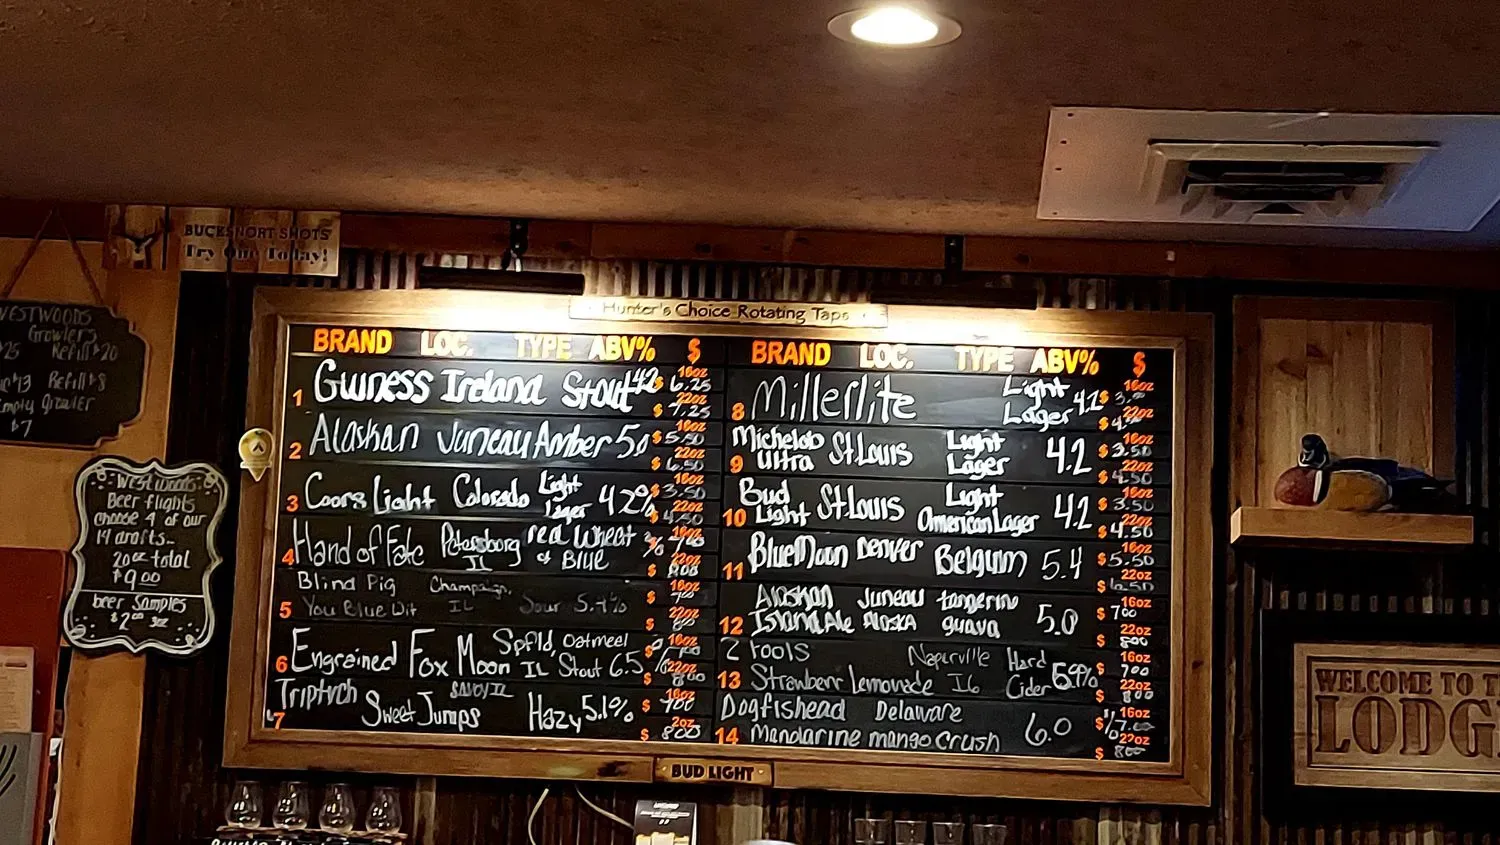 BUCKSNORT SHOTS
Try One Today!
WESTWOODS
Growlers
$25 Refill $20
$13 Refill $8
Empty growler
$7
Westwoods
Beer flights
Choose 4 of our
14 drafts...
20oz total
$9.00
beer samples
$2.00 3oz
Hunter's Choice Rotating Taps
BRAND LOC. TYPE ABV% $
1 Guiness Ireland Stout 4.2 16oz $ 6.25
22oz $ 7.25
2 Alaskan Juneau Amber 5.0 16oz $ 5.50
22oz $ 6.50
3 Coors Light Colorado Light Lager 4.2% 16oz $ 3.50
22oz $ 4.50
4 Hand of Fate Petersborg IL red Wheat & Blue % 16oz $ 700
22oz $ 800
5 Blind Pig Champaign, IL
You Blue Wit Sour 5.4% 16oz $ 700
22oz $ 800
6 Engrained Fox Moon Spfld, IL Oatmeel Stout 6.5% 16oz $ 700
22oz $ 800
7 Triptych Savoy IL
Sweet Jumps Hazy 5.1% 16oz $ 700
2oz $ 800
BRAND LOC. TYPE ABV% $
8 Millerlite Light Lager 4.2 16oz $ 3.
22oz $ 4.
9 Michelob Ultra St.Louis Light Lager 4.2 16oz $ 3.50
22oz $ 4.50
10 Bud Light St.Louis Light American Lager 4.2 16oz $ 3.50
22oz $ 4.50
11 BlueMoon Denver Belgium 5.4 16oz $ 5.50
22oz $ 6.50
12 Alaskan Juneau tangerine
Island Ale Alaska guava 5.0 16oz $ 700
22oz $ 800
13 2 Fools Naperville Hard
Strawberr Lemonade IL Cider 6.9% 16oz $ 700
22oz $ 800
14 Dogfishead Delaware
Mandarine mango crush 6.0 16oz $ 7.00
22oz $ 800
BUD LIGHT
WELCOME TO T
LODG